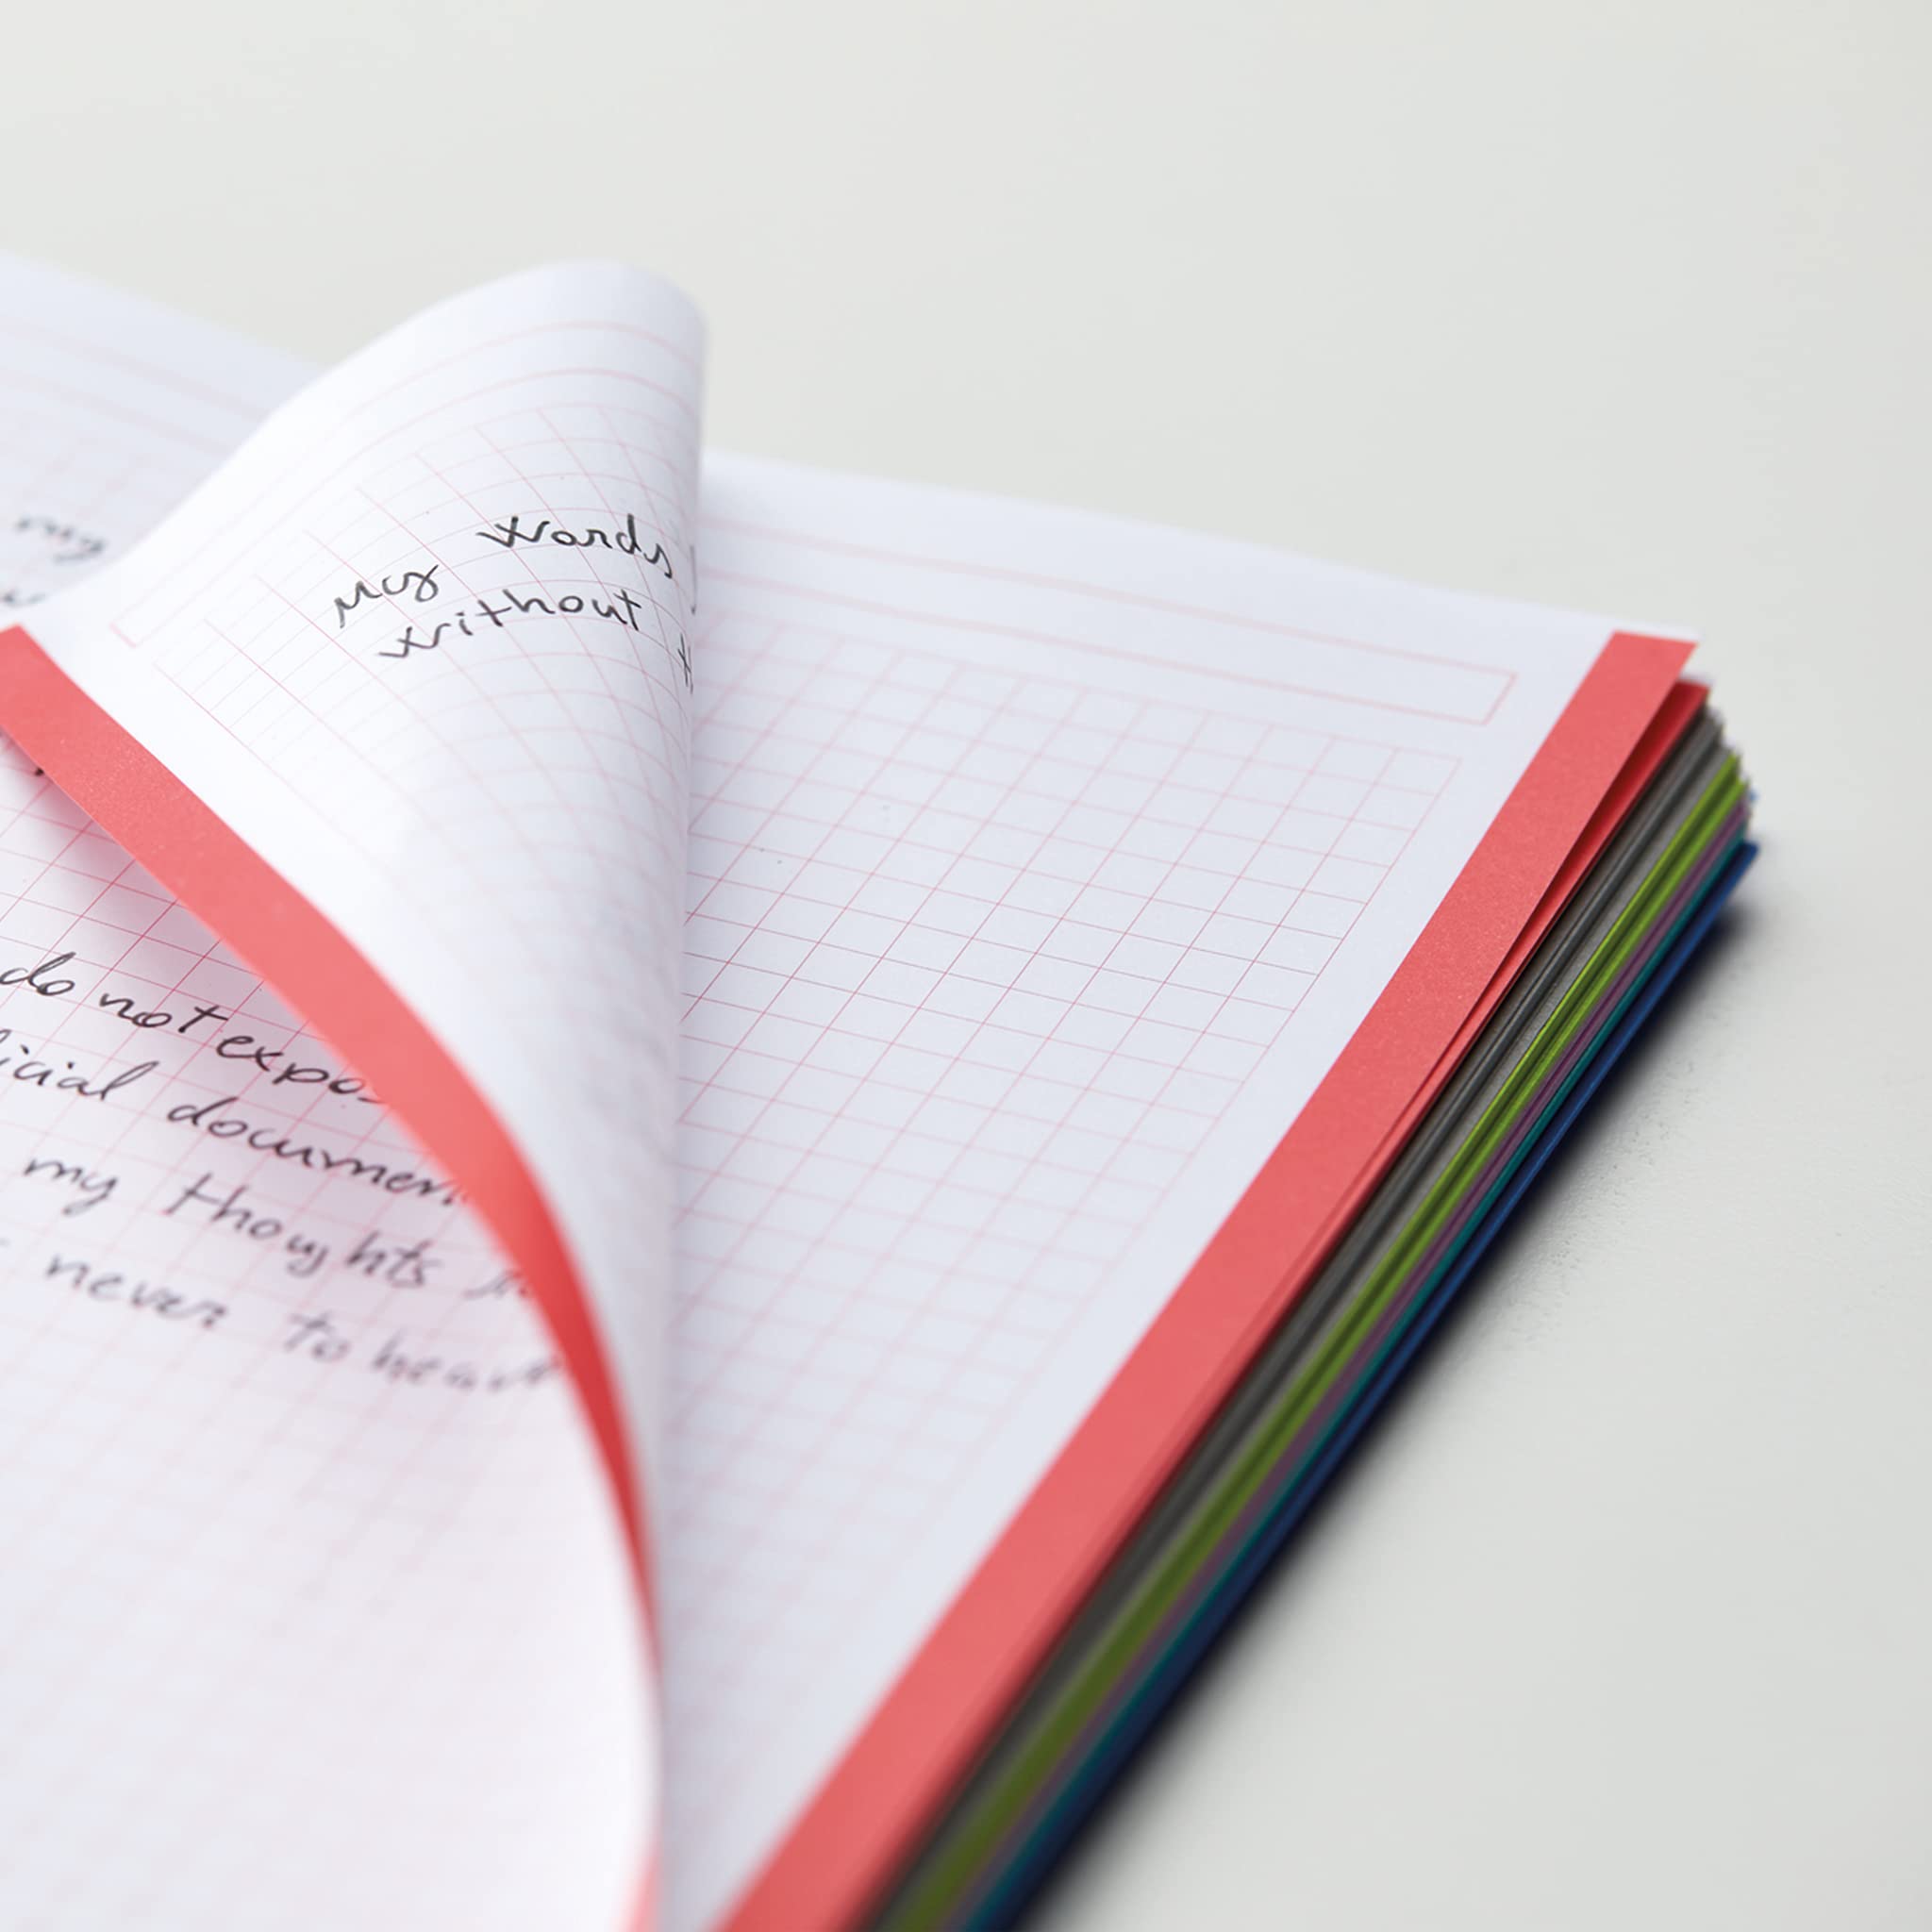 my
words
My
without
do not expos
icial documen
my thoughts
never to hear